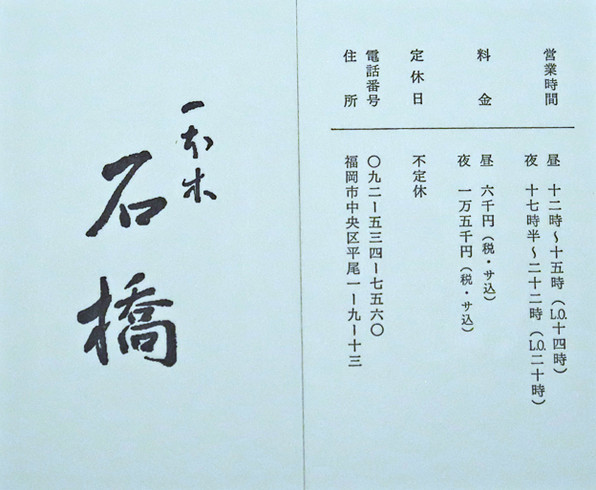 営業時間 昼 十二時〜十五時(L.O.十四時)
夜 十七時半〜二十二時(L.O.二十時)
料金 昼 六千円(税・サ込)
夜 一万五千円(税・サ込)
定休日 不定休
電話番号 〇九二ー五三四ー七五六〇
住所 福岡市中央区平尾一ー九ー十三
一本木
石橋